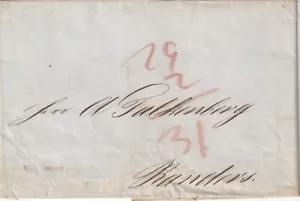 29
2
Herr A Falkenberg
31
Randers.